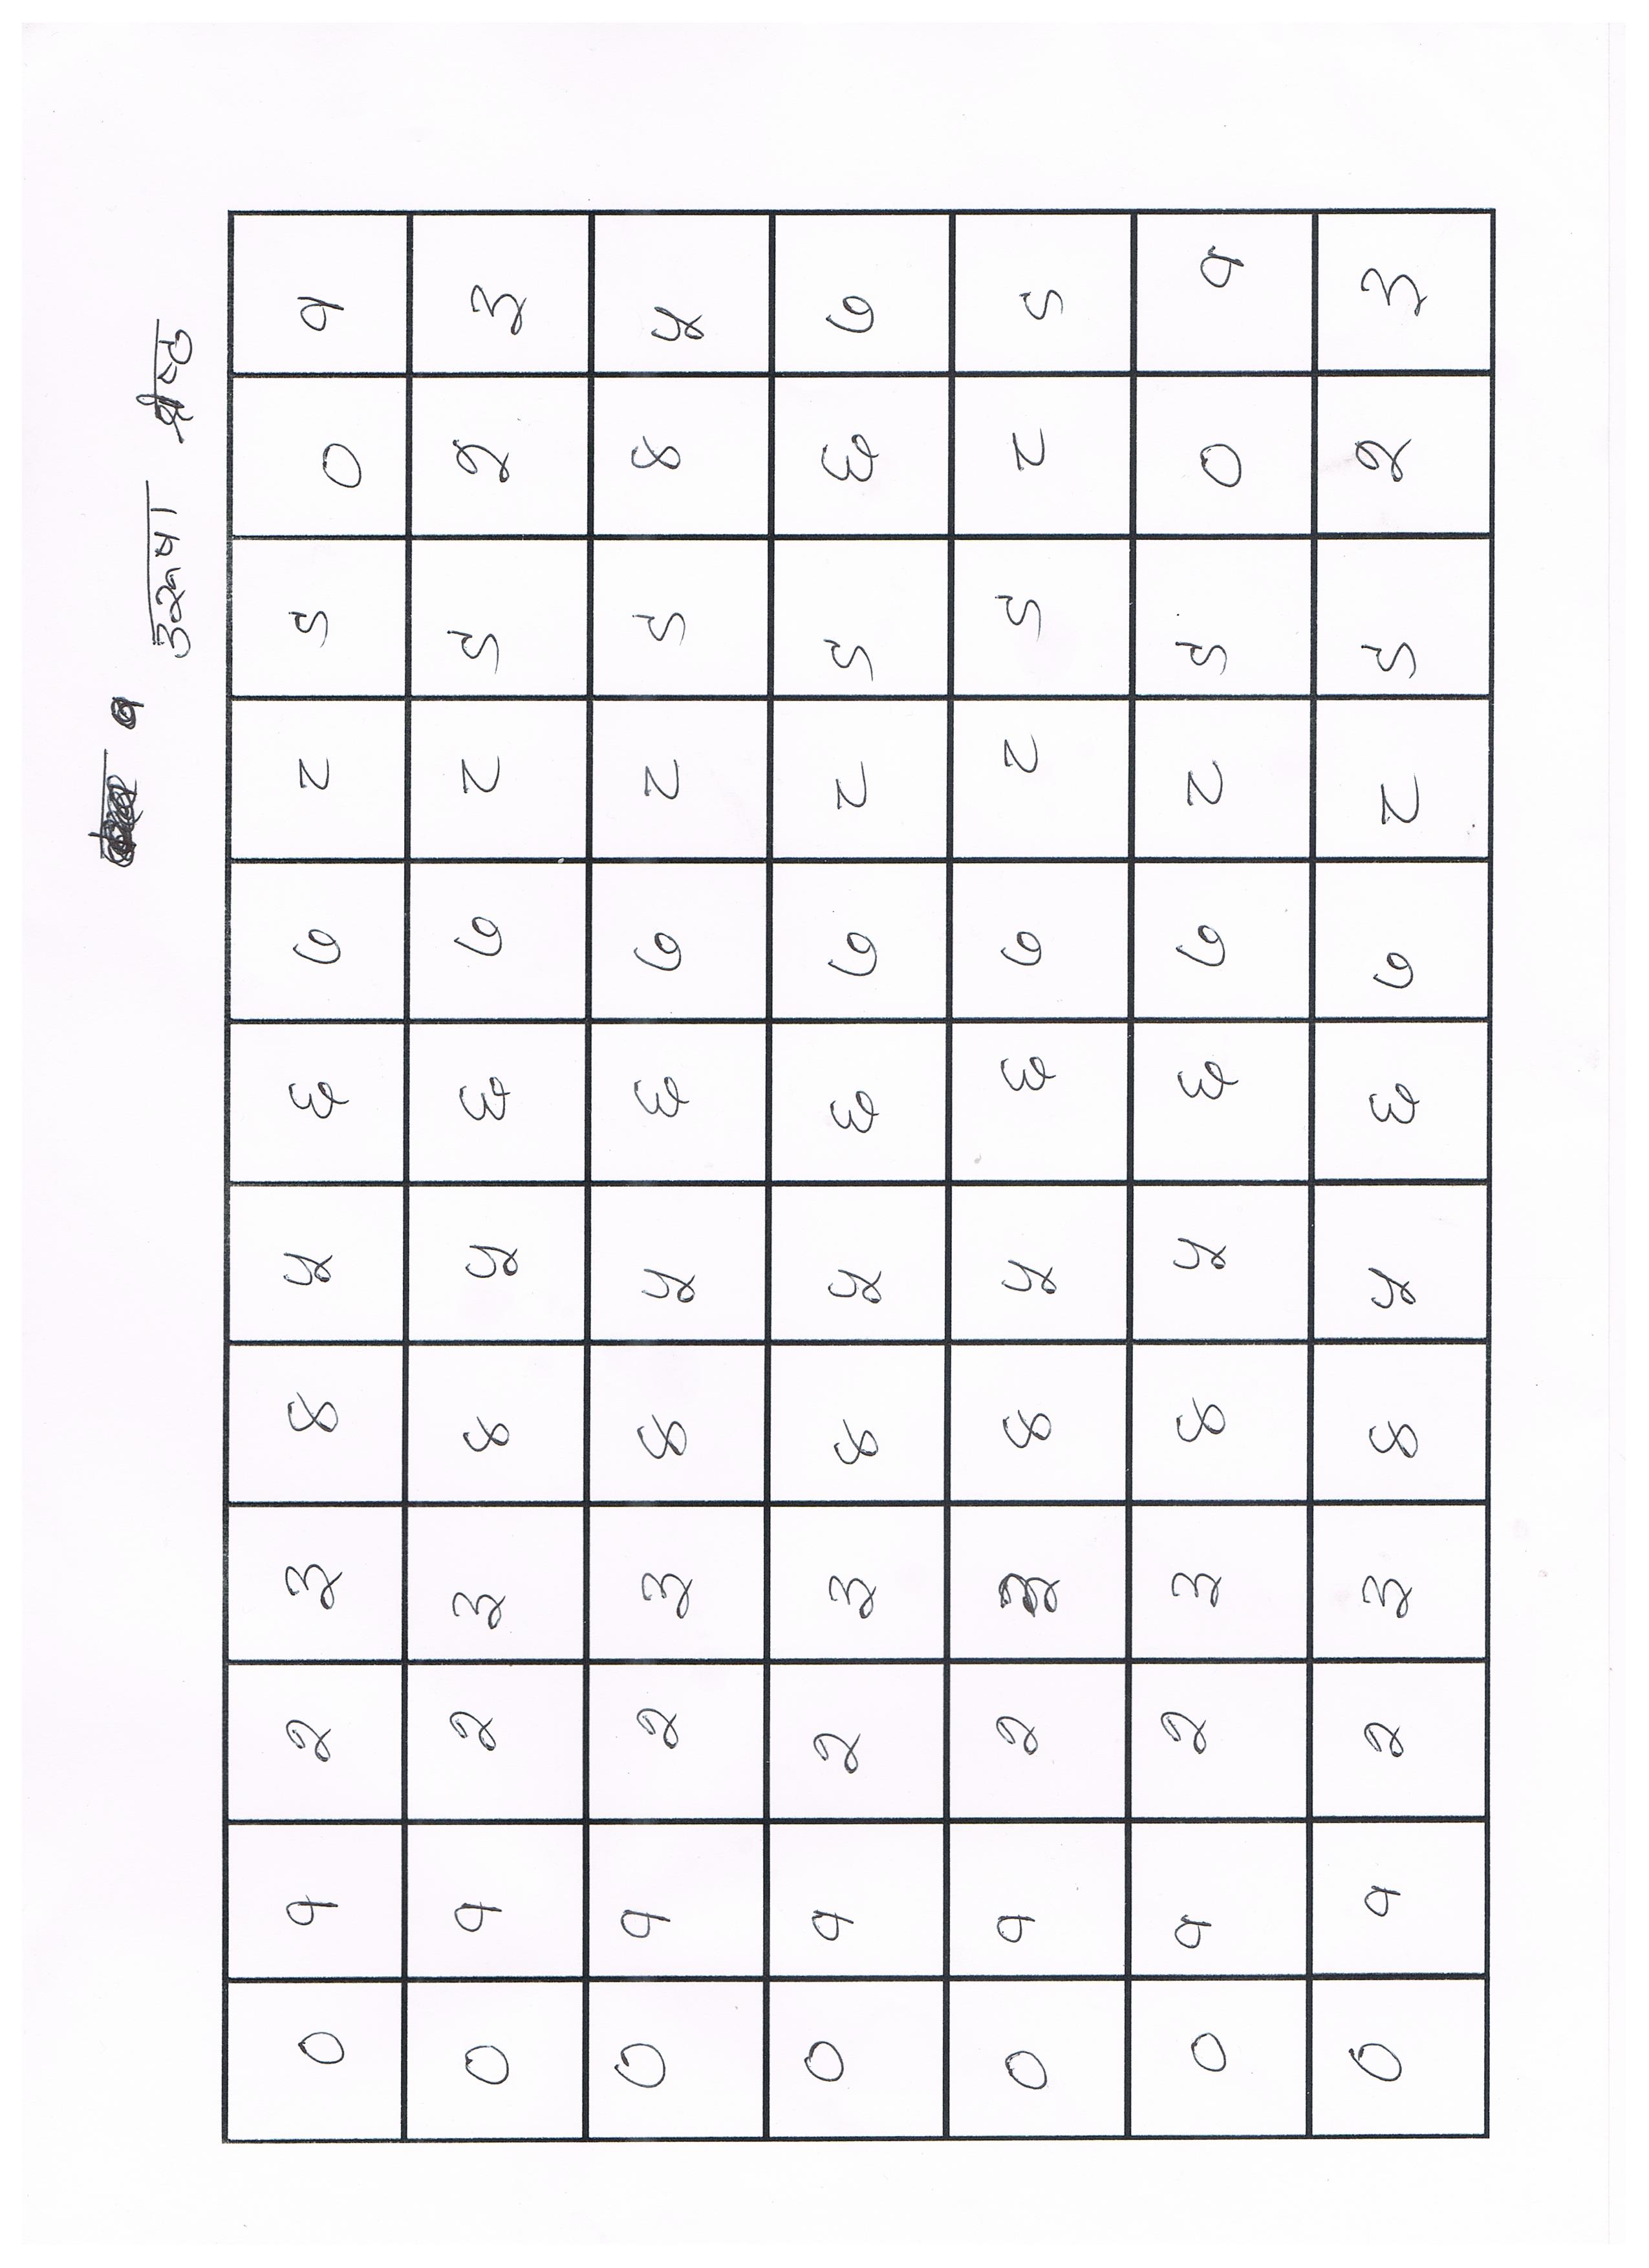 श्रेष्ठ
० १ २ ३ ४ ५ ६ ७ ८ ९ ० १
० १ २ ३ ४ ५ ६ ७ ८ ९ २ ३
० १ २ ३ ४ ५ ६ ७ ८ ९ ४ ५
० १ २ ३ ४ ५ ६ ७ ८ ९ ६ ७
० १ २ ३ ४ ५ ६ ७ ८ ९ ८ ९
० १ २ ३ ४ ५ ६ ७ ८ ९ ० १
० १ २ ३ ४ ५ ६ ७ ८ ९ २ ३